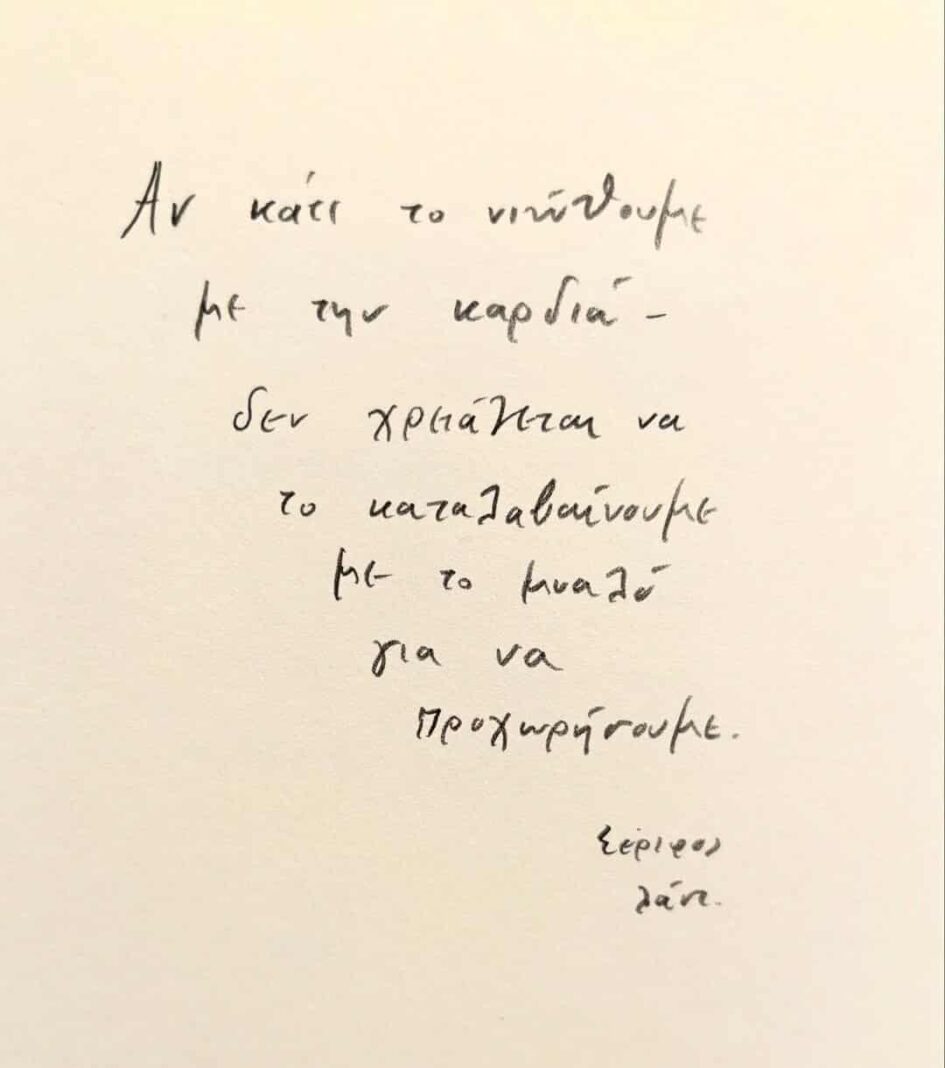 Αν κάτι το νιώθουμε
με την καρδιά –
δεν χρειάζεται να
το καταλαβαίνουμε
με το μυαλό
για να
προχωρήσουμε.